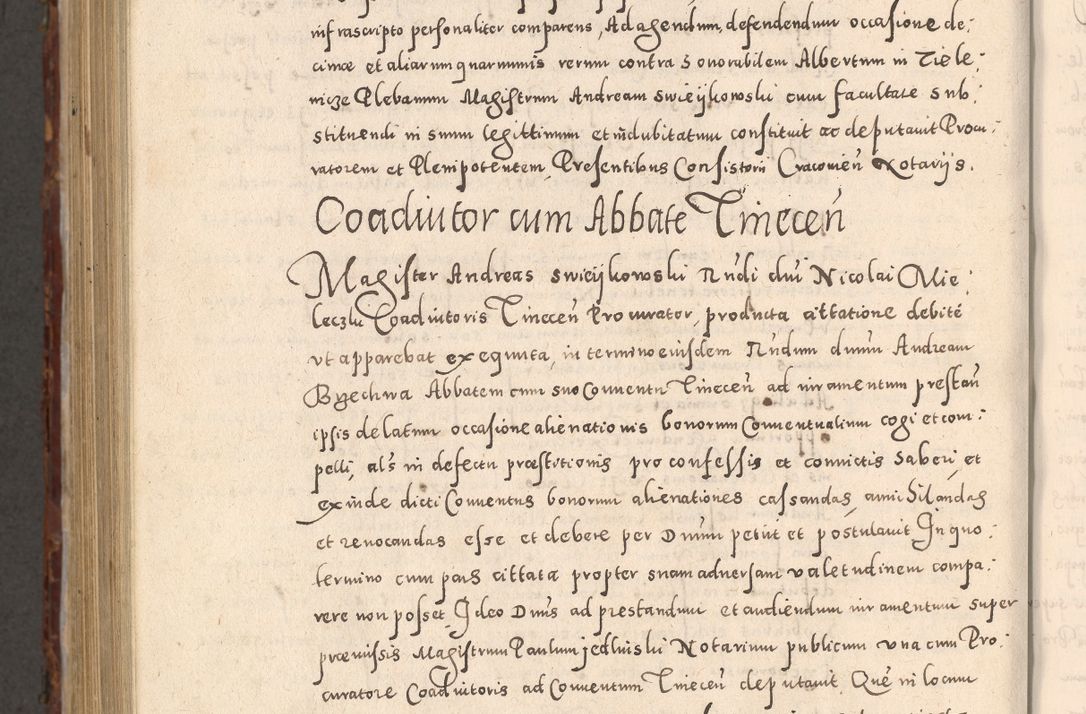 infrascripto personaliter comparens, Ad agendum, defendendum occasione de:
cimæ et aliarum quarumuis rerum contra Honorabilem Albertum in Ziele:
nicze Plebanum Magistrum Andream Swieijkowski cum facultate sub:
stituendi in suum legittimum et indubitatum constituit ac deputauit Procu:
ratorem et Plenipotentem, Presentibus Consistorii Cracouien̄ Notarijs.
Coadiutor cum Abbate Tinecen̄
Magister Andreas Swieijkowski Rn̄di dn̄i Nicolai Mie:
leczki Coadiutoris Tinecen̄ Procurator, producta cittatione debité
vt apparebat exequuta, in termino eiusdem Rn̄dum dn̄um Andream
Brzechwa Abbatem cum suo Conuentu Tinecen̄ ad iuramentum prestan̄
ipsis delatum occasione alienationis bonorum Conuentualium cogi et com:
pelli, als in defectu præstitionis pro confessis et conuictis haberi, et
exinde dicti Conuentus bonorum alienationes cassandas, annihilandas
et reuocandas esse et debere per Dn̄um petiit et postulauit In quo:
termino cum pars cittata propter suam aduersam valetudinem compa:
rere non posset, Ideo Dn̄us ad prestandum et audiendum iuramentum super
præmissis Magistrum Paulum jedlinski Notarium publicum vna cum Pro:
curatore Coadiutoris ad Conuentum Tinecen̄ deputauit. Que in locum